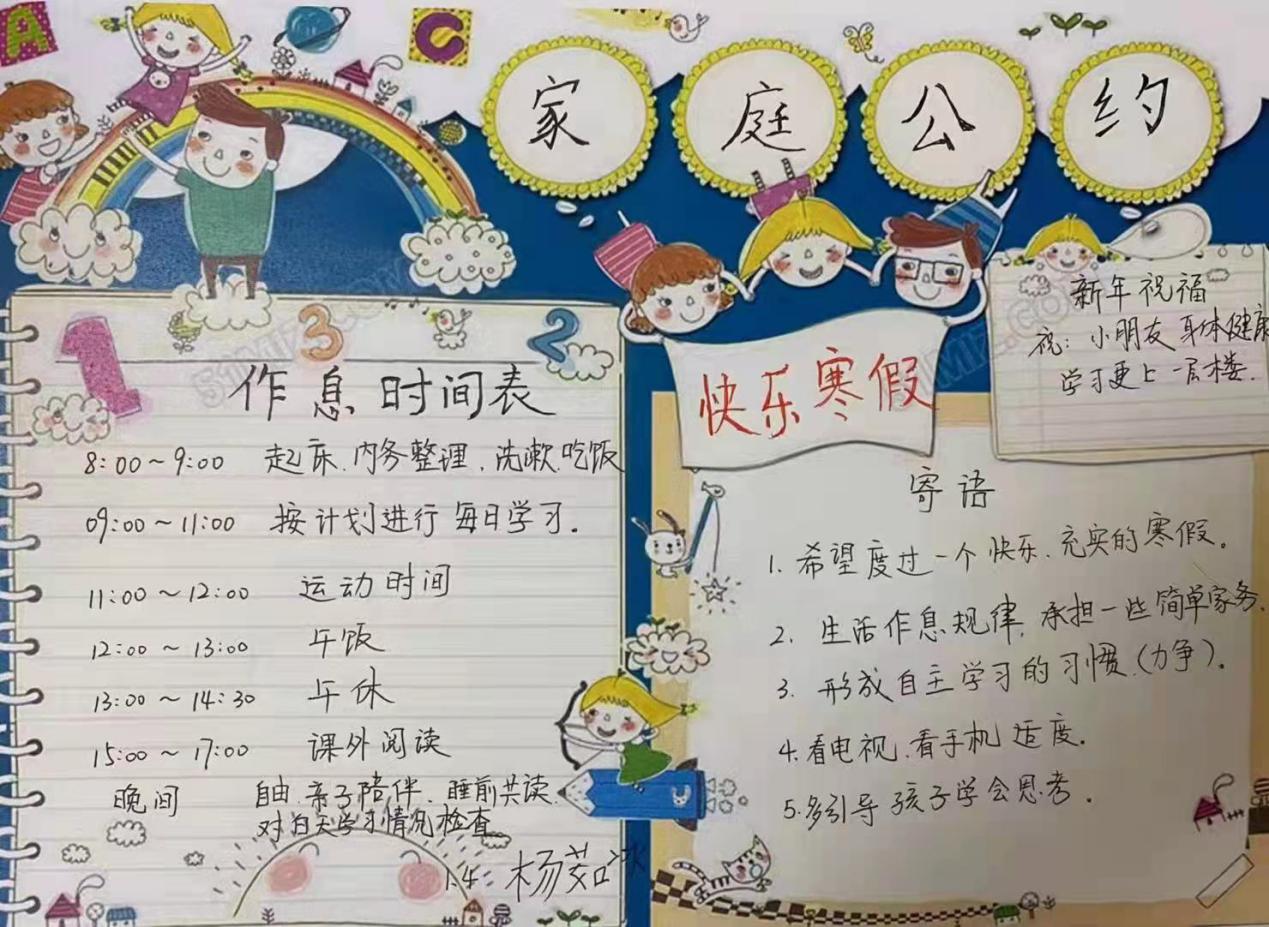 A
C
家庭公约
1
3
2
作息时间表
8:00~9:00 起床、内务整理、洗漱、吃饭
09:00~11:00 按计划进行每日学习。
11:00~12:00 运动时间
12:00~13:00 午饭
13:00~14:30 午休
15:00~17:00 课外阅读
晚间 自由、亲子陪伴、睡前共读、
对白天学习情况检查
1.4 杨茹冰
快乐寒假
新年祝福
祝:小朋友身体健康
学习更上一层楼.
寄语
1.希望度过一个快乐、充实的寒假。
2.生活作息规律,承担一些简单家务.
3.形成自主学习的习惯.(力争)。
4.看电视、看手机适度.
5.多引导孩子学会思考.